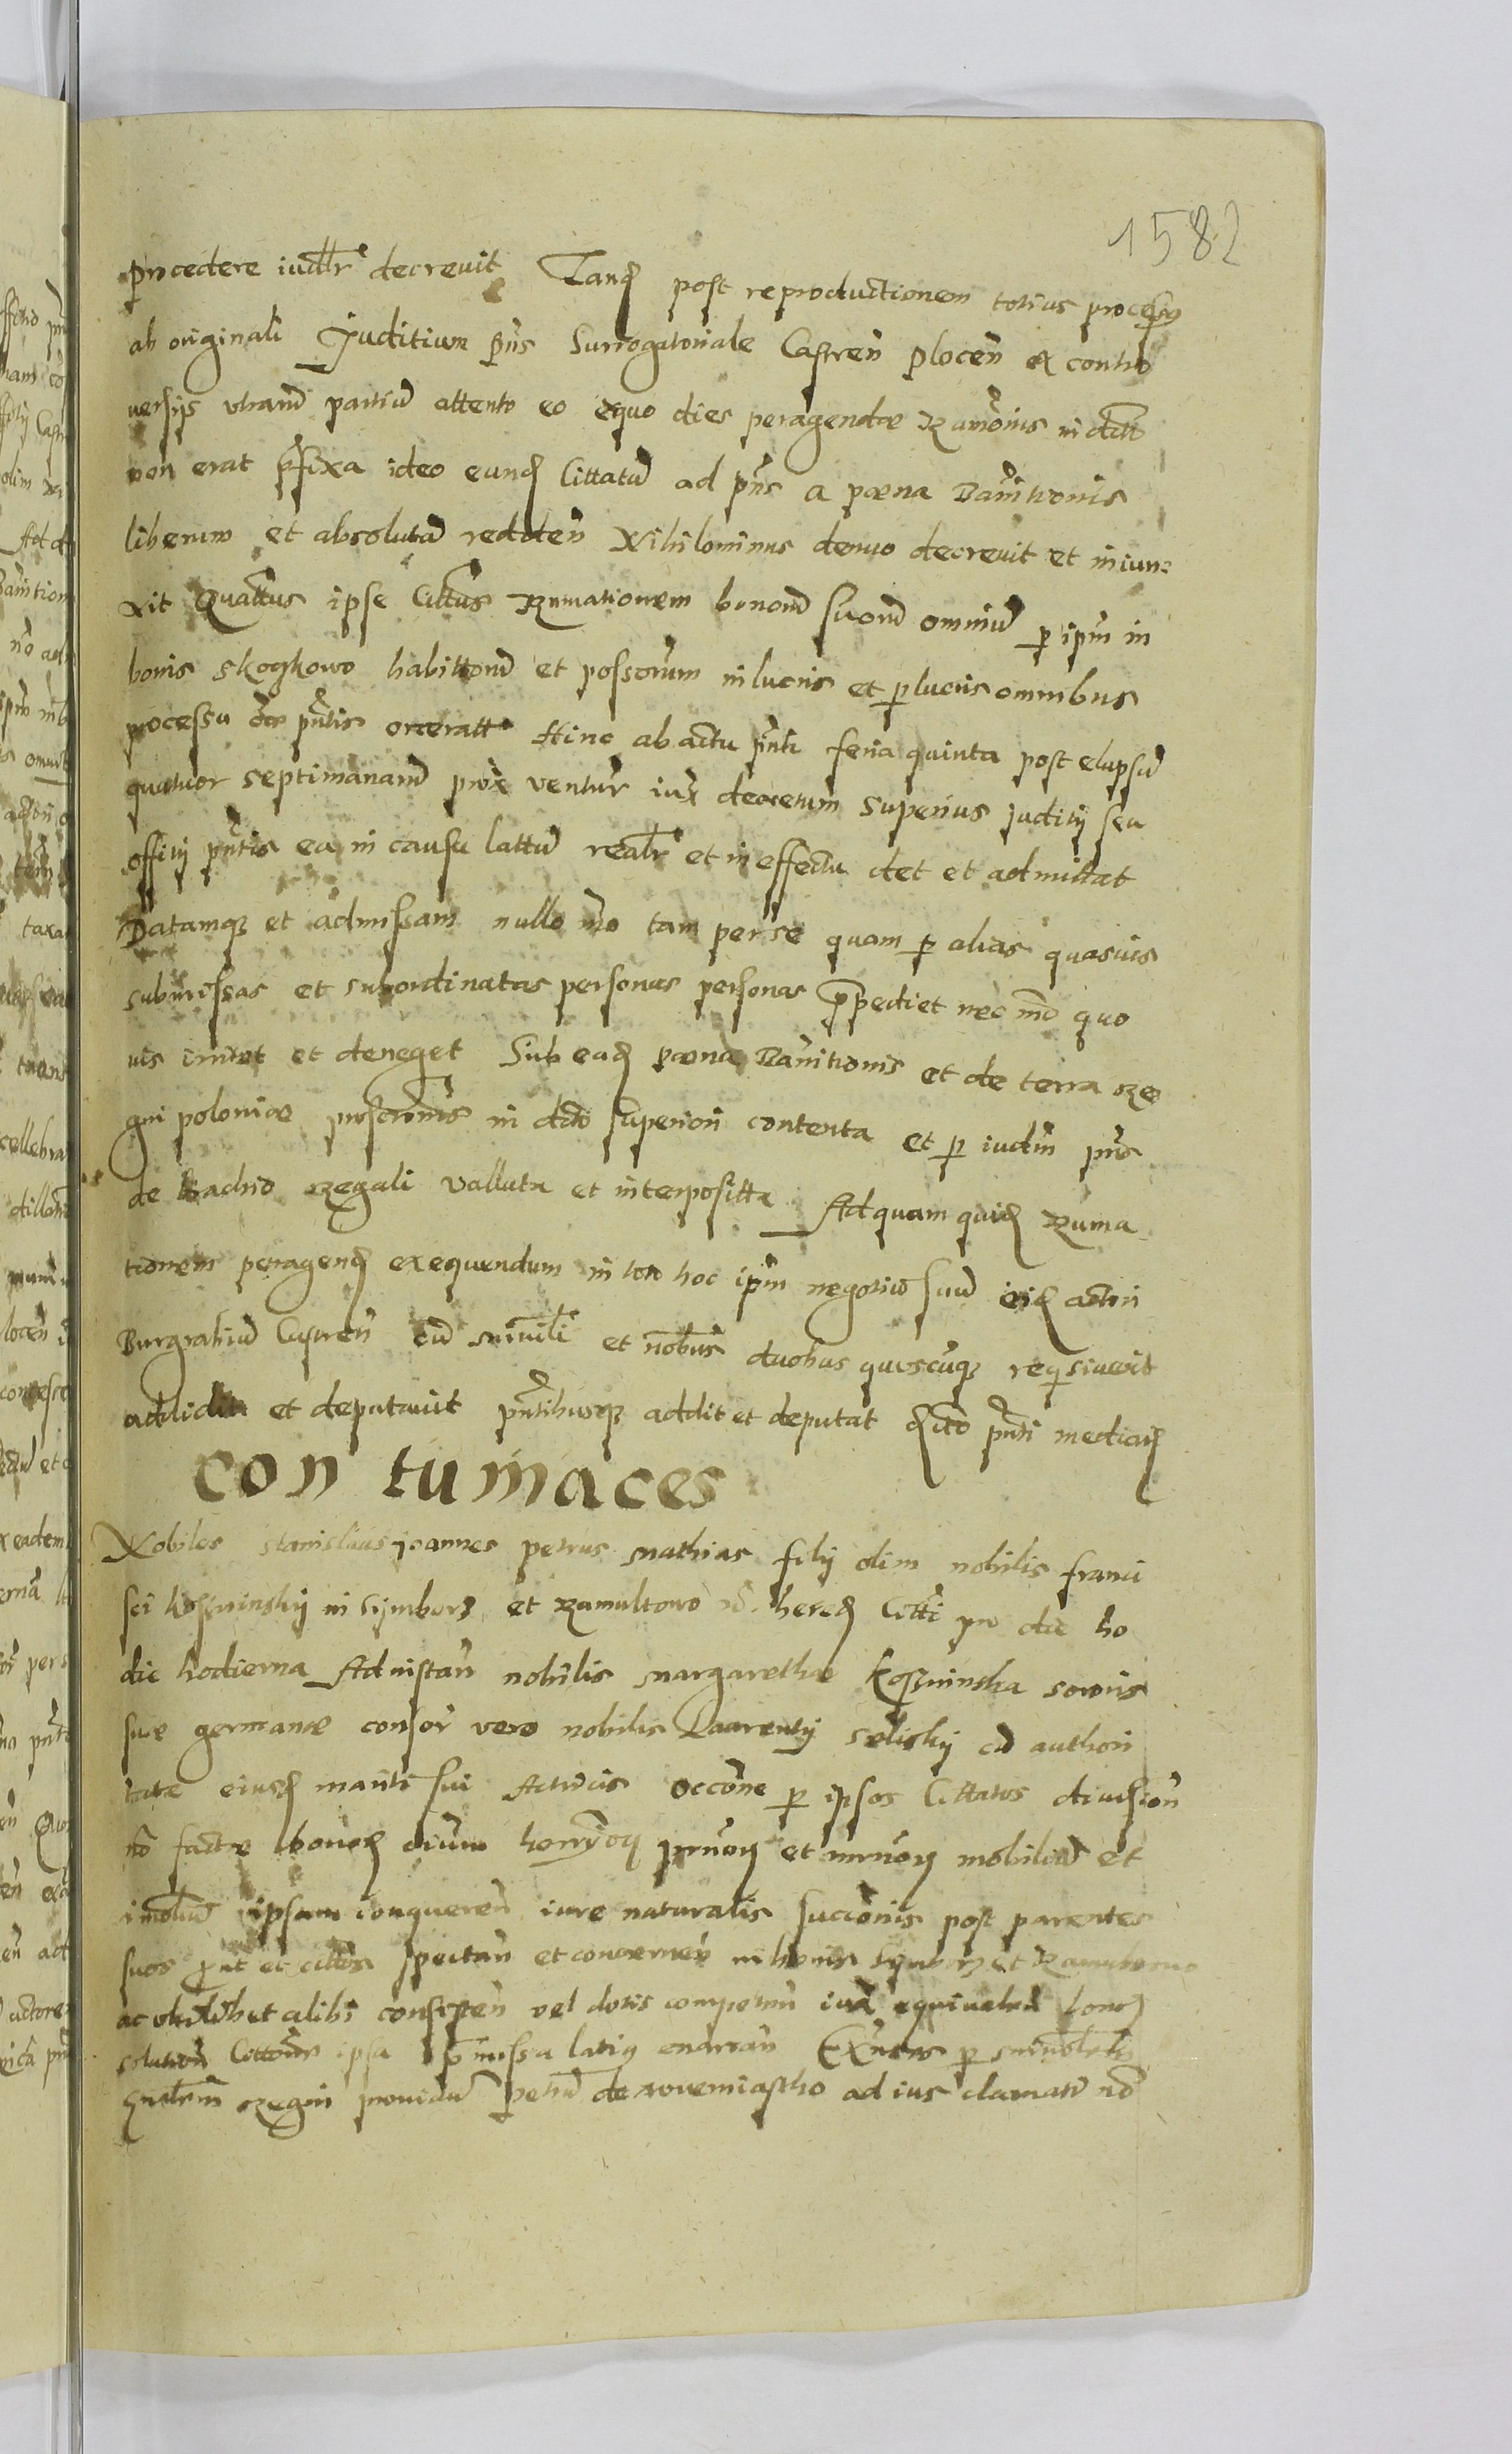 1582
procedere iudllr decrevit Tand post reproductionem totius processus
ab originali Juditium pns Surrogatoriale Castren plocen ex contro
versijs utrarum partium attento eo equo dies peragendæ Rumonis in
non erat pfixa ideo eund Cittatum ad pns a pæna Bannitionis
liberum et absolutum redden Nihilominus denuo decrevit et iniun=
xit Quattus ipse Cittus Rumationem bonorum suorum omnium p ipm in
bonis skogkowo habittorum et possorum in lucris et plucris omnibus
processu pntis Hinc ab actu pnti feria quinta post elapsum
quatuor septimanarum prox ventur iux decretum superius juditij seu
offitij pntis ea in causa lattum realr et in effectu det et admittat
Datamq et admissam nullo mo tam per se quam p alias quasuis
submissas et subordinatas personas personas ppediet nec mo quo
uis irritet et deneget Sub ead pæna Bannitionis et de terra Re
gni poloniæ proscrionis in superiori contenta et p iudm pns
de vadio Regali vallata et interposita Ad quam quid Ruma
tionem peragend exequendum in toto hoc ipm negotio suum eid actori
Burgrabium Castren cum et noblbus duobus quoscuq reqsiuerit
addidit et deputauit pntibusq addit et deputat pnti median
contumaces
Nobiles stanislaus joannes petrus mathias filij olim nobilis franci
sci in et Ramultowo hered Citti pro die ho
die hodierna Ad instan nobilis margarethæ sororis
suæ germanæ consor vero nobilis Laurentij cum authori
tate eiusd mariti sui Actricis occone p ipsos Cittatos diuision
no factæ bonor oium et mobilium et
imobilium ipsam conqueren iure naturalis succionis post parentes
suos put et spectan et concernen in bonis et
ac ubilibet alibi consisten vel dotis competen iuxta bonor
solution ipsa pmissa latius enarran p
regni prouidum petrum de nouemiastho ad ius clamati no